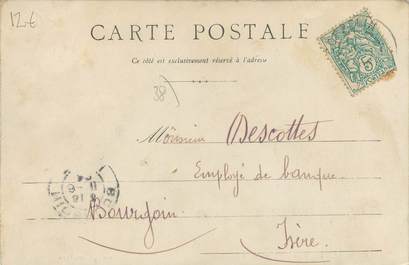 12€
CARTE POSTALE
Ce côté est exclusivement réservé à l'adresse
38)
Monsieur Descottes
Employé de banque
Bourgoin
Isère.